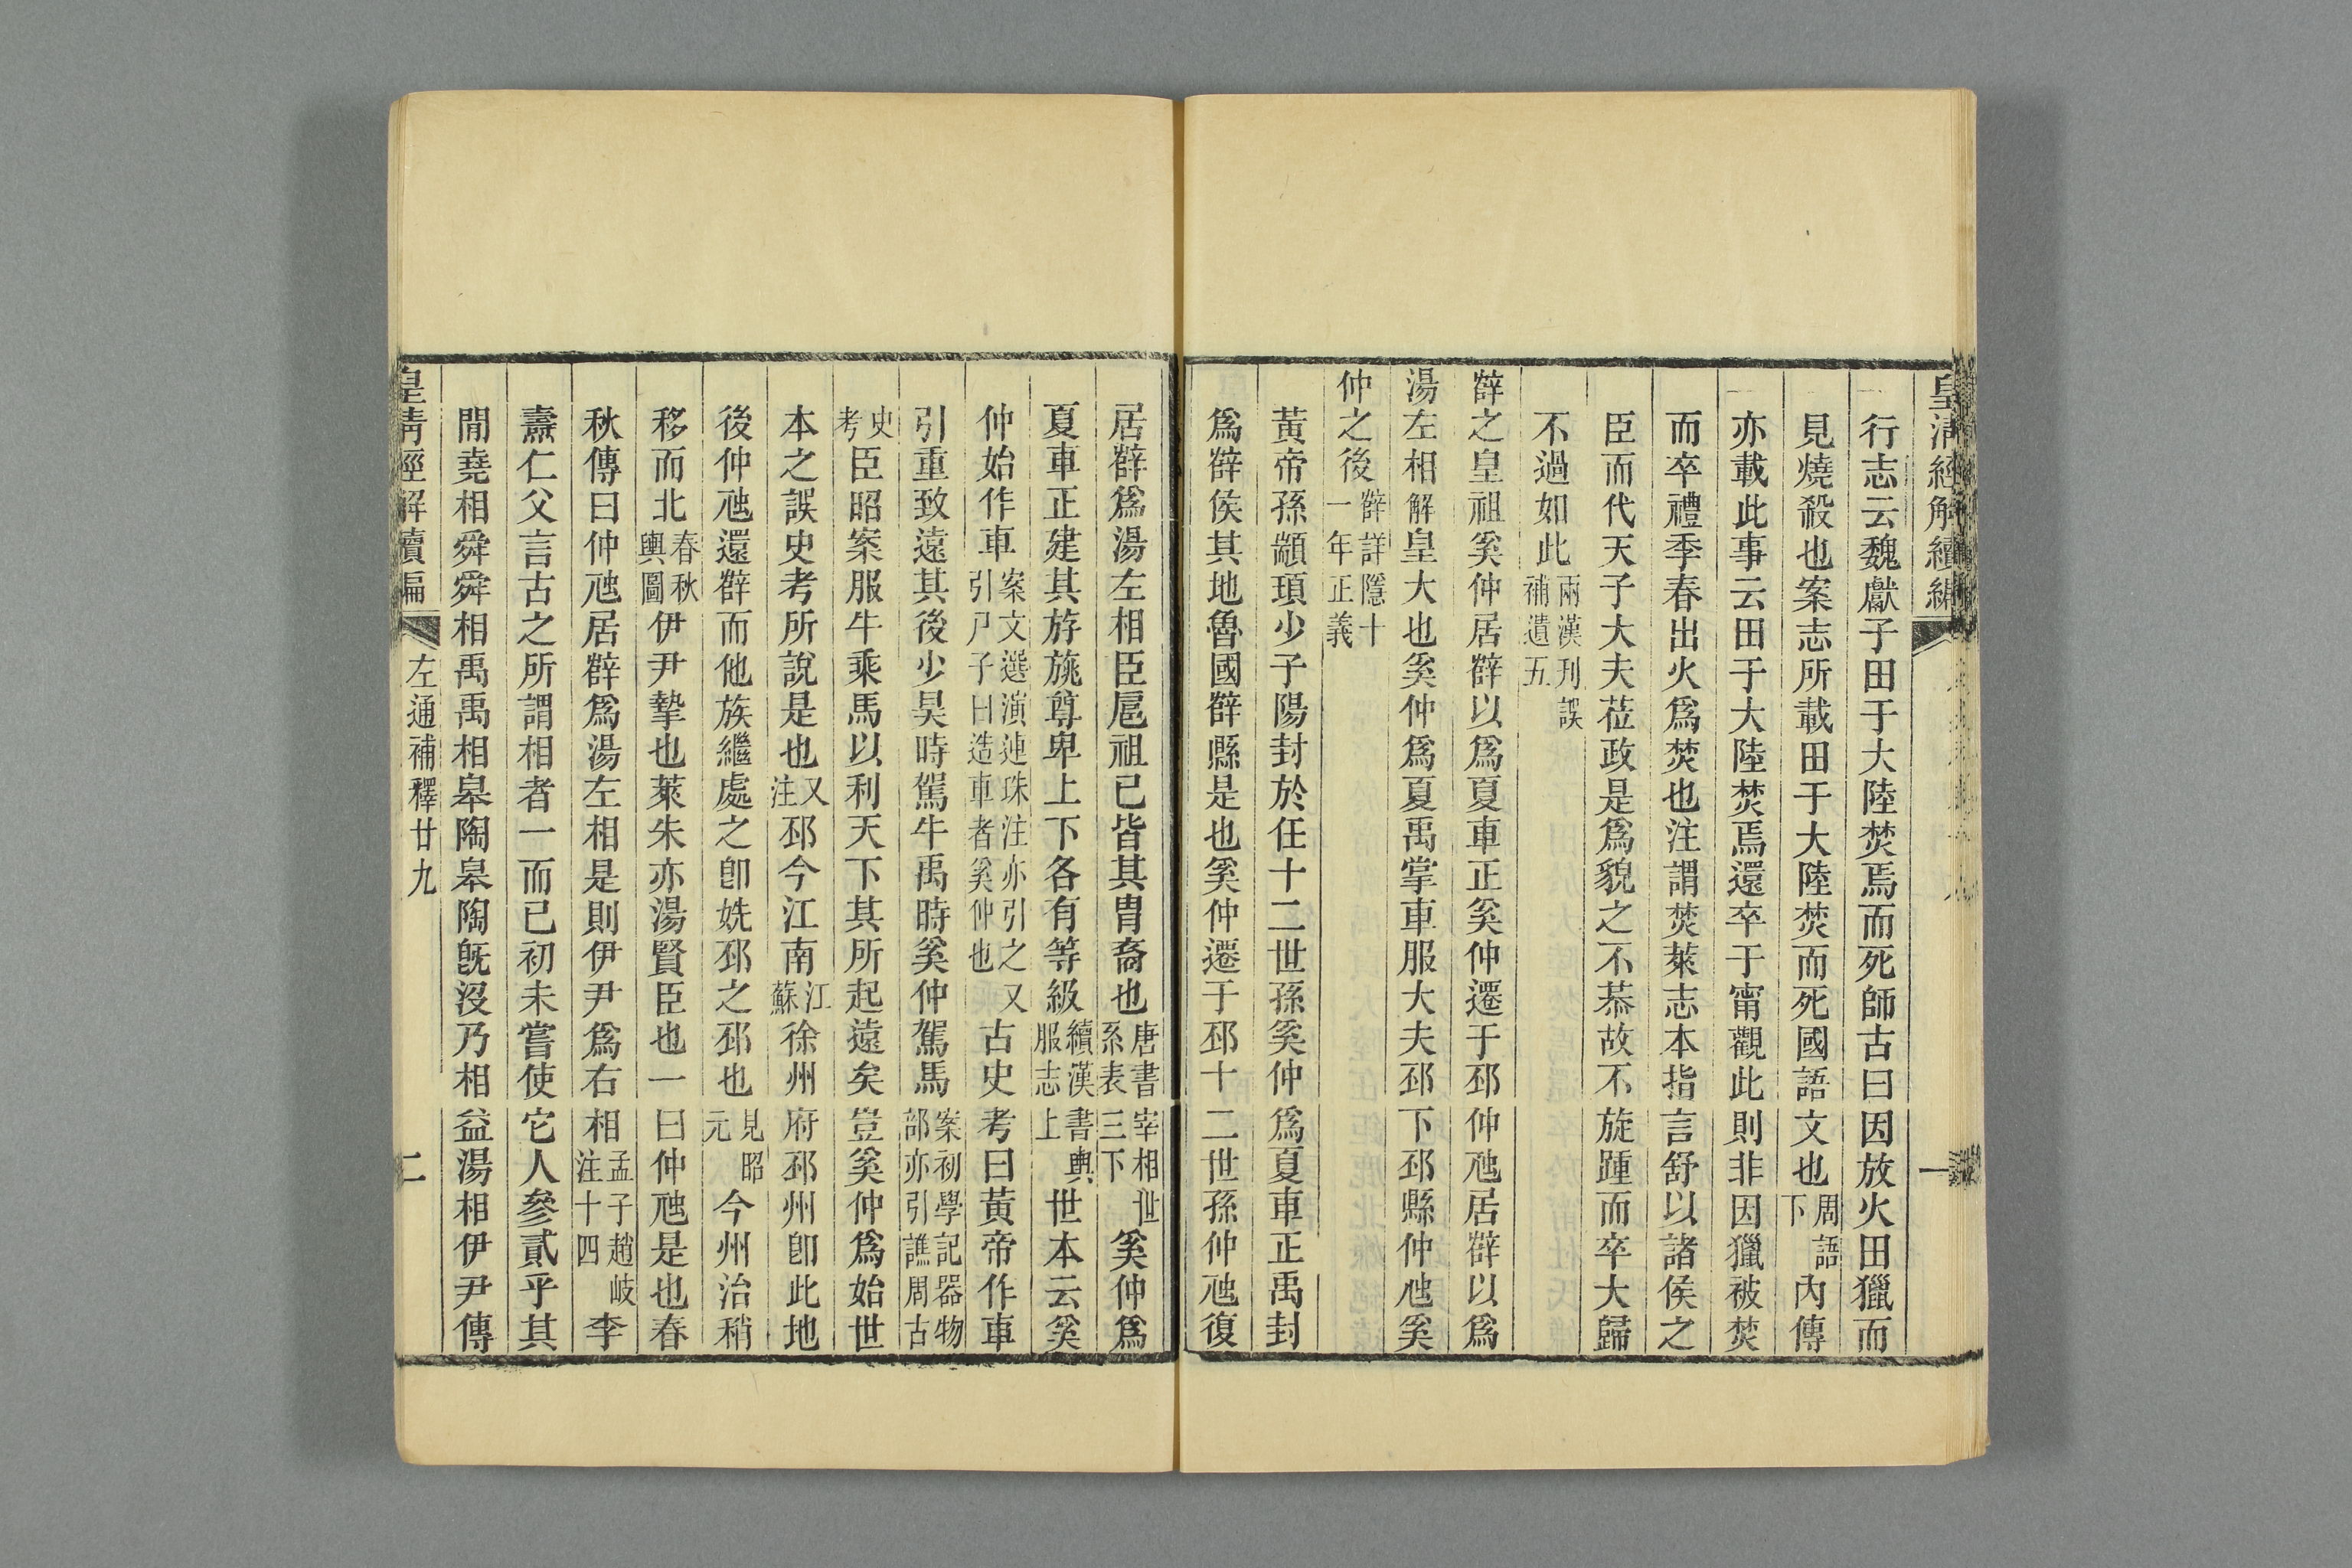 皇清經解續編
一
行志云魏獻子田于大陸焚焉而死師古曰因放火田獵而
見燒殺也案志所載田于大陸焚而死國語文也周語下內傳
亦載此事云田于大陸焚焉還卒于甯觀此則非因獵被焚
而卒禮季春出火爲焚也注謂焚萊志本指言舒以諸侯之
臣而代天子大夫莅政是爲貌之不恭故不旋踵而卒大歸
不過如此兩漢刊誤補遺五
辥之皇祖奚仲居辥以爲夏車正奚仲遷于邳仲虺居辥以爲
湯左相解皇大也奚仲爲夏禹掌車服大夫邳下邳縣仲虺奚
仲之後辥詳隱十一年正義
黃帝孫顓頊少子陽封於任十二世孫奚仲爲夏車正禹封
爲辥侯其地魯國辥縣是也奚仲遷于邳十二世孫仲虺復
居辥爲湯左相臣扈祖已皆其胄裔也唐書宰相世系表三下奚仲爲
夏車正建其斿旐尊卑上下各有等級續漢書輿服志上世本云奚
仲始作車案文選演連珠注亦引之又引尸子曰造車者奚仲也古史考曰黃帝作車
引重致遠其後少昊時駕牛禹時奚仲駕馬案初學記器物部亦引譙周古
史考臣昭案服牛乘馬以利天下其所起遠矣豈奚仲爲始世
本之誤史考所說是也又注邳今江南江蘇徐州府邳州卽此地
後仲虺還辥而他族繼處之卽姺邳之邳也見昭元今州治稍
移而北春秋輿圖伊尹摯也萊朱亦湯賢臣也一曰仲虺是也春
秋傳曰仲虺居辥爲湯左相是則伊尹爲右相孟子趙岐注十四李
燾仁父言古之所謂相者一而已初未嘗使它人參貳乎其
閒堯相舜舜相禹禹相皋陶皋陶旣沒乃相益湯相伊尹傳
皇清經解續編
左通補釋廿九
二